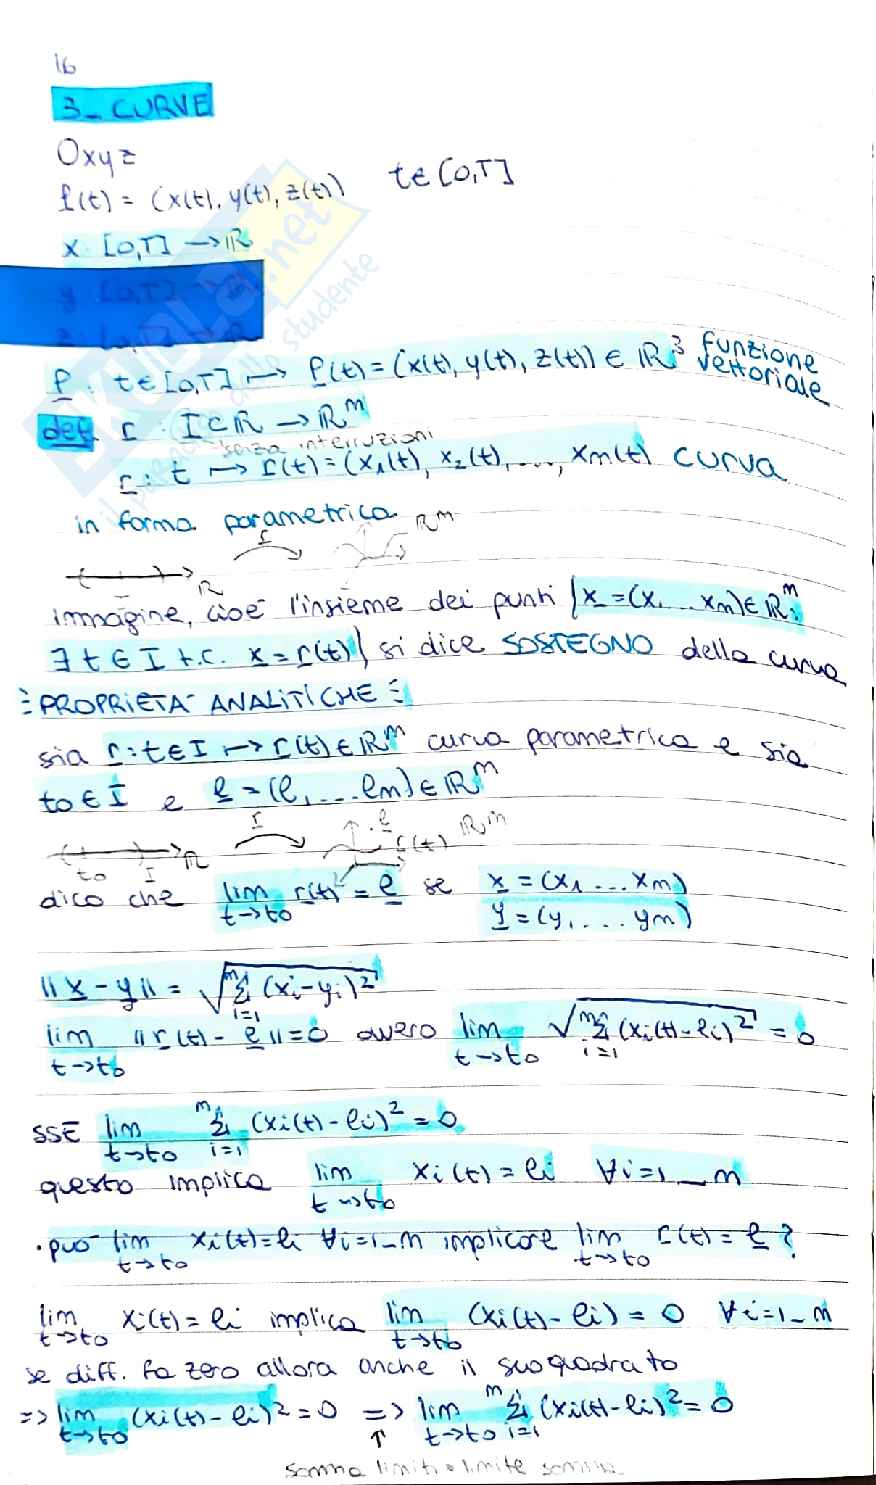 16
3_ CURVE
Oxyz
f(t) = (x(t), y(t), z(t)) t∈[0,T]
x: [0,T] → ℝ
y: [0,T] → ℝ
z: [0,T] → ℝ
f: t∈[0,T] ↦ f(t) = (x(t), y(t), z(t)) ∈ ℝ³ funzione vettoriale
def. r : I⊂ℝ → ℝᵐ
senza interruzioni
r: t ↦ r(t) = (x₁(t), x₂(t), ..., xm(t) curva
in forma parametrica
I ℝ r ℝᵐ
immagine, cioè l'insieme dei punti {x = (x₁ ... xm) ∈ ℝᵐ:
∃ t ∈ I t.c. x = r(t)} si dice SOSTEGNO della curva
PROPRIETÀ ANALITICHE
sia r: t∈I ↦ r(t)∈ℝᵐ curva parametrica e sia
t₀∈I e l = (l₁ ... lm) ∈ ℝᵐ
t₀ I ℝ r l r(t) ℝᵐ
dico che lim t→t₀ r(t) = l se x = (x₁ ... xm)
y = (y₁ ... ym)
||x - y|| = √Σ i=1 m (xi - yi)²
lim t→t₀ ||r(t) - l|| = 0 ovvero lim t→t₀ √Σ i=1 m (xi(t) - li)² = 0
SSE lim t→t₀ Σ i=1 m (xi(t) - li)² = 0
questo implica lim t→t₀ xi(t) = li ∀i=1_m
• può lim t→t₀ xi(t) = li ∀i=1_m implicare lim t→t₀ r(t) = l ?
lim t→t₀ xi(t) = li implica lim t→t₀ (xi(t) - li) = 0 ∀i=1_m
se diff. fa zero allora anche il suo quadrato
=> lim t→t₀ (xi(t) - li)² = 0 => lim t→t₀ Σ i=1 m (xi(t) - li)² = 0
↑
somma limiti = limite somma